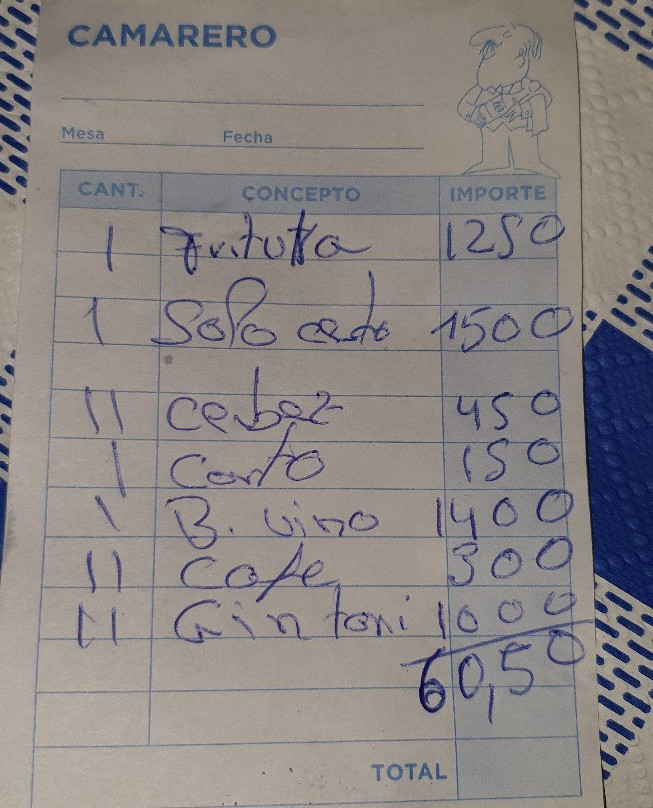 CAMARERO
Mesa Fecha
CANT. CONCEPTO IMPORTE
1 Fritura 1250
1 Solo 1500
11 450
1 Corto 150
1 B. vino 1400
11 Cafe 300
11 Gin toni 1000
60,50
TOTAL